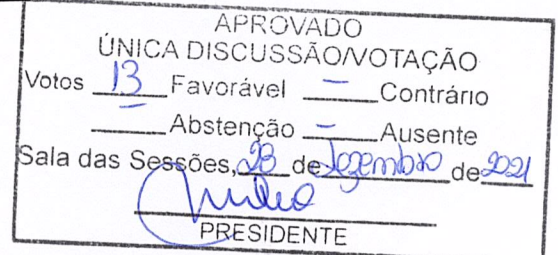 APROVADO
ÚNICA DISCUSSÃO/VOTAÇÃO
Votos 13 Favorável — Contrário
— Abstenção — Ausente
Sala das Sessões, 28 de Dezembro de 2021
PRESIDENTE